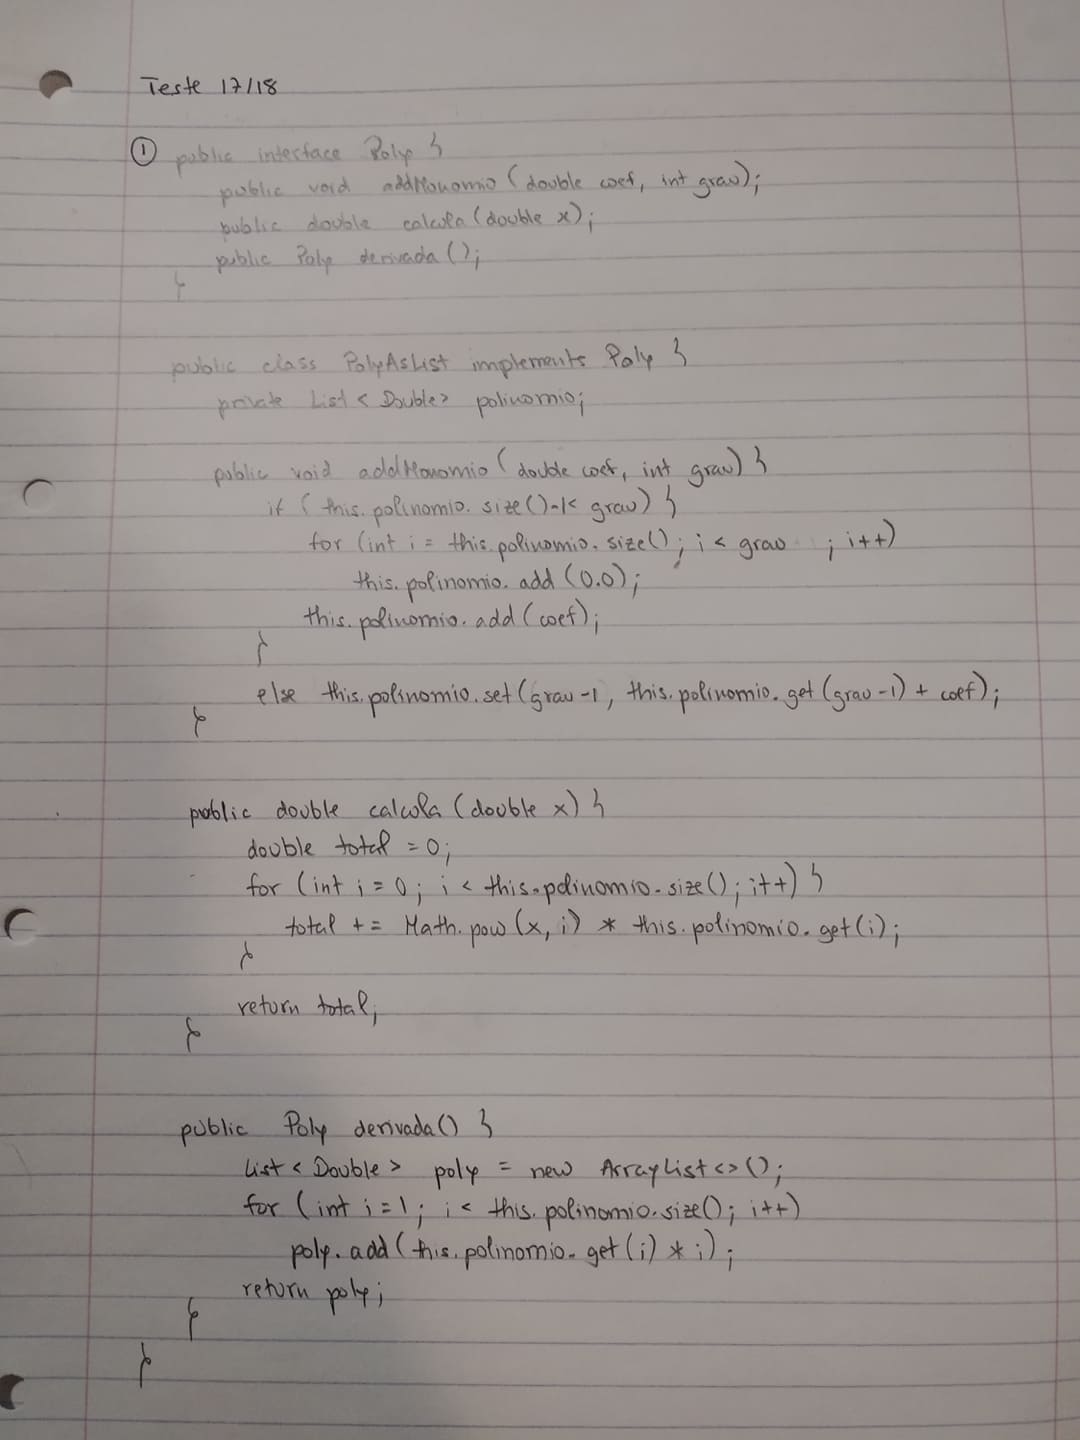 Teste 17/18
① public interface Poly {
public void addMonomio (double coef, int grau);
public double calcula (double x);
public Poly derivada ();
}
public class PolyAsList implements Poly {
private List < Double > polinomio;
public void addMonomio (double coef, int grau) {
if (this.polinomio.size()-1< grau) {
for (int i = this.polinomio.size(); i < grau ; i++)
this.polinomio.add (0.0);
this.polinomio.add (coef);
}
else this.polinomio.set (grau -1, this.polinomio.get (grau -1) + coef);
}
public double calcula (double x) {
double total = 0;
for (int i = 0; i < this.polinomio.size(); i++) {
total += Math.pow (x, i) * this.polinomio.get (i);
}
return total;
}
public Poly derivada () {
List < Double > poly = new ArrayList <> ();
for (int i = 1; i < this.polinomio.size(); i++)
poly.add (this.polinomio.get (i) * i);
return poly;
}
}